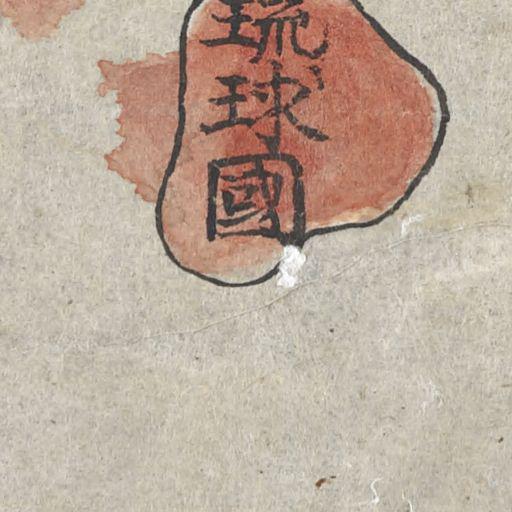 琉球國